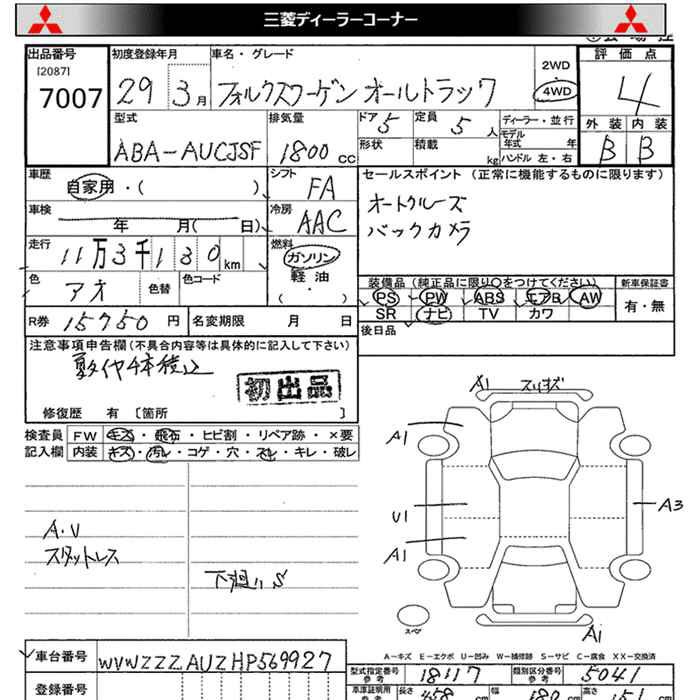 三菱ディーラーコーナー
出品番号 初度登録年月 車名・グレード 2WD 評価点
[2087]
7007 29 3月 フォルクスワーゲン オールトラック 4WD 4
型式 排気量 ドア 5 定員 5人 ディーラー・並行 外装 内装
ABA-AUCJSF 1800 cc 形状 積載 kg モデル年式 年 B B
ハンドル 左・右
車歴 シフト セールスポイント (正常に機能するものに限ります)
自家用・( ) FA オートクルーズ
車検 冷房 バックカメラ
年 月( 日) AAC
走行 燃料
11万3千130km ガソリン
色 色替 色コード 軽油 装備品 (純正品に限り○をつけてください) 新車保証書
アオ ( ・ ) PS PW ABS エアB AW 有・無
R券 15750円 名変期限 月 日 SR ナビ TV カワ
後日品
注意事項申告欄(不具合内容等は具体的に記入して下さい)
初出品
修復歴 有 [箇所 ]
検査員 FW キズ・飛石・ヒビ割・リペア跡・×要
記入欄 内装 キズ・汚レ・コゲ・穴・スレ・キレ・破レ
A1
A1
U1 A3
A1
A.V
スタットレス
下廻りS
スペア
A1
A-キズ E-エクボ U-凹み W-補修跡 S-サビ C-腐食 XX-交換済
車台番号 WVWZZZAUZHP569927 型式指定番号 参考 18117 類別区分番号 参考 5041
登録番号 長さ 458 cm 幅 180 cm 高さ 151 cm